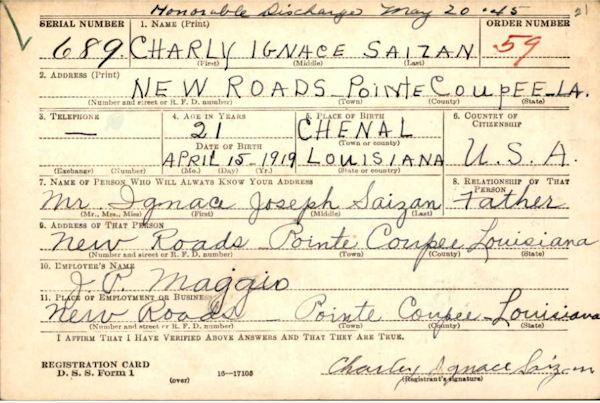 Honorable Discharge May 20 - 45 21
SERIAL NUMBER 1. NAME (Print) ORDER NUMBER
689. CHARLY IGNACE SAIZAN 59
(First) (Middle) (Last)
2. ADDRESS (Print)
NEW ROADS - POINTE COUPEE - LA.
(Number and street or R. F. D. number) (Town) (County) (State)
3. TELEPHONE 4. AGE IN YEARS 5. PLACE OF BIRTH 6. COUNTRY OF CITIZENSHIP
— 21 CHENAL
DATE OF BIRTH (Town or county)
APRIL 15 - 1919 LOUISIANA U.S.A.
(Exchange) (Number) (Mo.) (Day) (Yr.) (State or country)
7. NAME OF PERSON WHO WILL ALWAYS KNOW YOUR ADDRESS 8. RELATIONSHIP OF THAT PERSON
Mr. Ignace Joseph Saizan Father
(Mr., Mrs., Miss) (First) (Middle) (Last)
9. ADDRESS OF THAT PERSON
New Roads - Pointe Coupee Louisiana
(Number and street or R. F. D. number) (Town) (County) (State)
10. EMPLOYER'S NAME
J. P. Maggio
11. PLACE OF EMPLOYMENT OR BUSINESS
New Roads - Pointe Coupee - Louisiana
(Number and street or R. F. D. number) (Town) (County) (State)
I AFFIRM THAT I HAVE VERIFIED ABOVE ANSWERS AND THAT THEY ARE TRUE.
REGISTRATION CARD
D. S. S. Form 1 (over) 16—17105
Charley Ignace Saizan
(Registrant's signature)